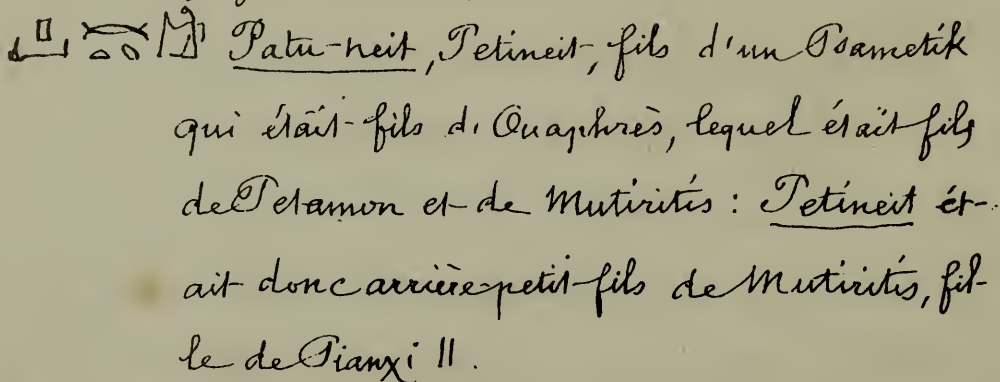 Patu-neit, Petineit, fils d'un Psametik
qui était fils d'Ouaphrès, lequel était fils
de Petamon et de Mutiritis : Petineit ét-
ait donc arrière-petit-fils de Mutiritis, fil-
le de Pianχi II.